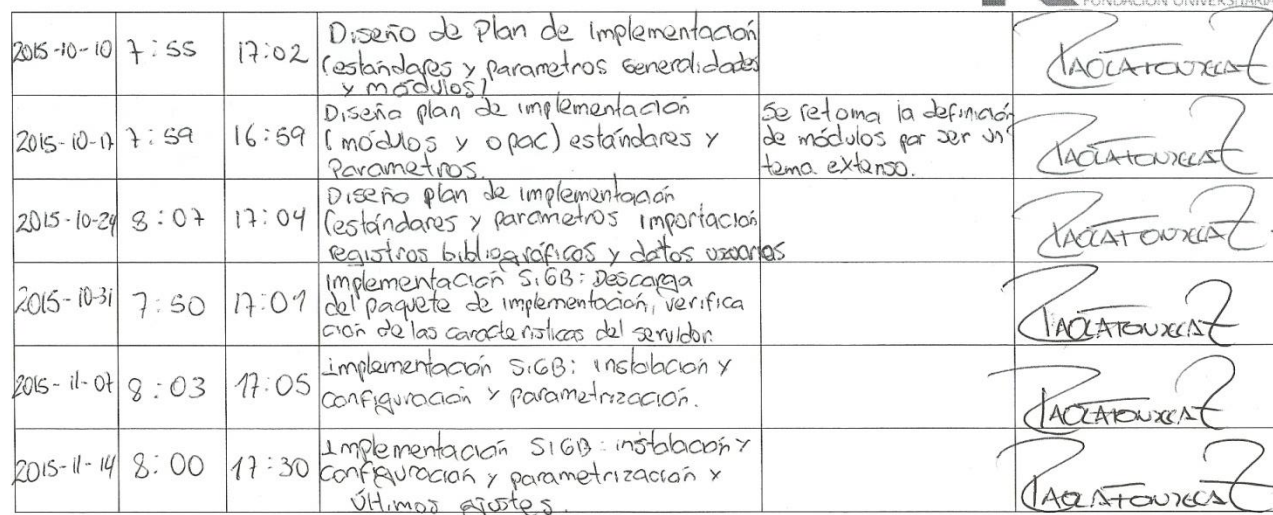 FUNDACIÓN UNIVERSITARIA
2015-10-10 7:55 17:02 Diseño de Plan de Implementación
(estandares y parametros Generalidades
y módulos)
2015-10-17 7:59 16:59 Diseño plan de implementación
(módulos y opac) estándares y
Parametros.
Se retoma la definición
de módulos por ser un
tema extenso.
2015-10-24 8:07 17:04 Diseño plan de implementación
(estándares y parametros importación
registros bibliográficos y datos usuarios
2015-10-31 7:50 17:01 Implementación SIGB: Descarga
del paquete de implementación, verifica
ción de las caracteristicas del servidor.
2015-11-07 8:03 17:05 Implementación SIGB: instalación y
configuración y parametrización.
2015-11-14 8:00 17:30 Implementación SIGB: instalación y
configuración y parametrización y
Últimos ajustes.